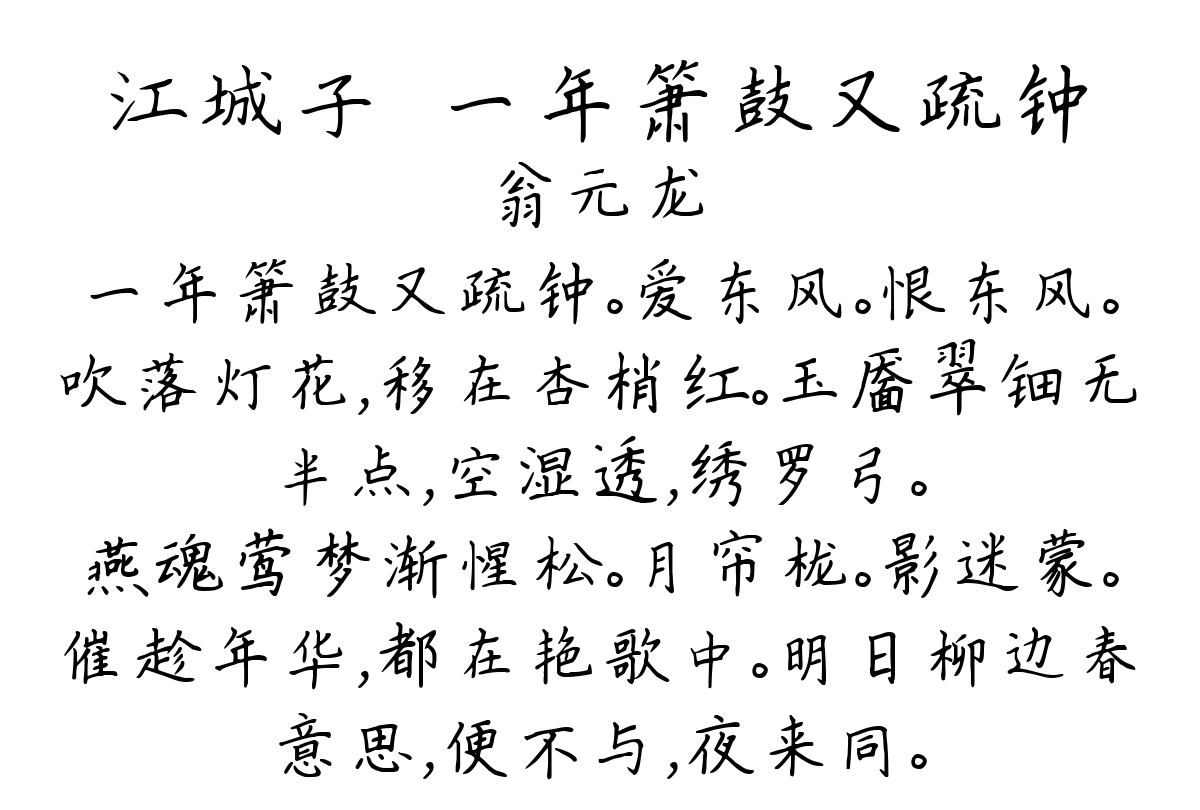 江城子 一年箫鼓又疏钟
翁元龙
一年箫鼓又疏钟。爱东风。恨东风。
吹落灯花,移在杏梢红。玉靥翠钿无
半点,空湿透,绣罗弓。
燕魂莺梦渐惺松。月帘栊。影迷蒙。
催趁年华,都在艳歌中。明日柳边春
意思,便不与,夜来同。